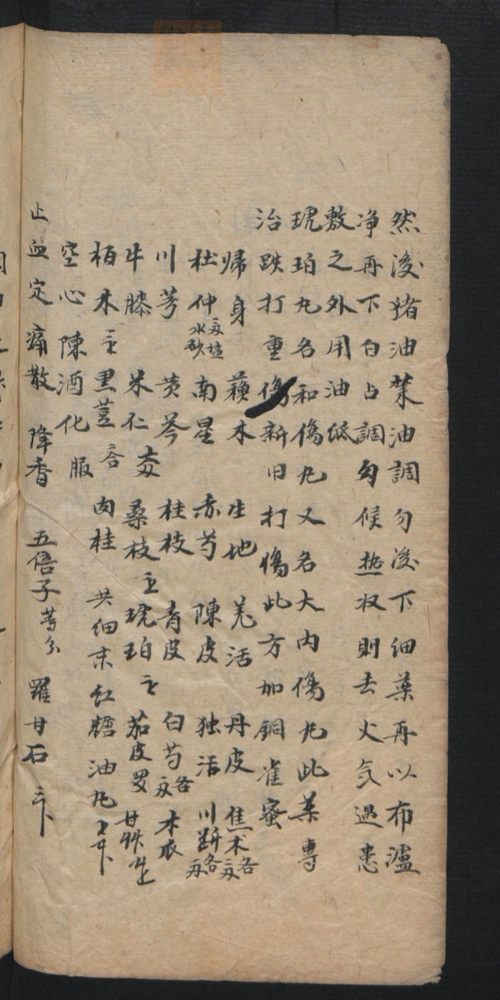 然後猪油菜油調匀後下細藥再以布瀘
净再下白占調匀候热収則去火気遇患
敷之外用油纸
琥珀丸名和傷丸又名大内傷丸此藥專
治跌打重傷新旧打傷此方加銅雀蜜
帰身 蘓木 生地 羌活 丹皮 焦术各
杜仲 南星 赤芍 陳皮 独活 川断各
川芎 黄芩 桂枝 青皮 白芍各 木
牛膝 米仁 桑枝 琥珀 茄皮
栢木 黒荳 肉桂 共细末红糖油丸
空心陳酒化服
止血定痛散 降香 五倍子等分 羅甘石